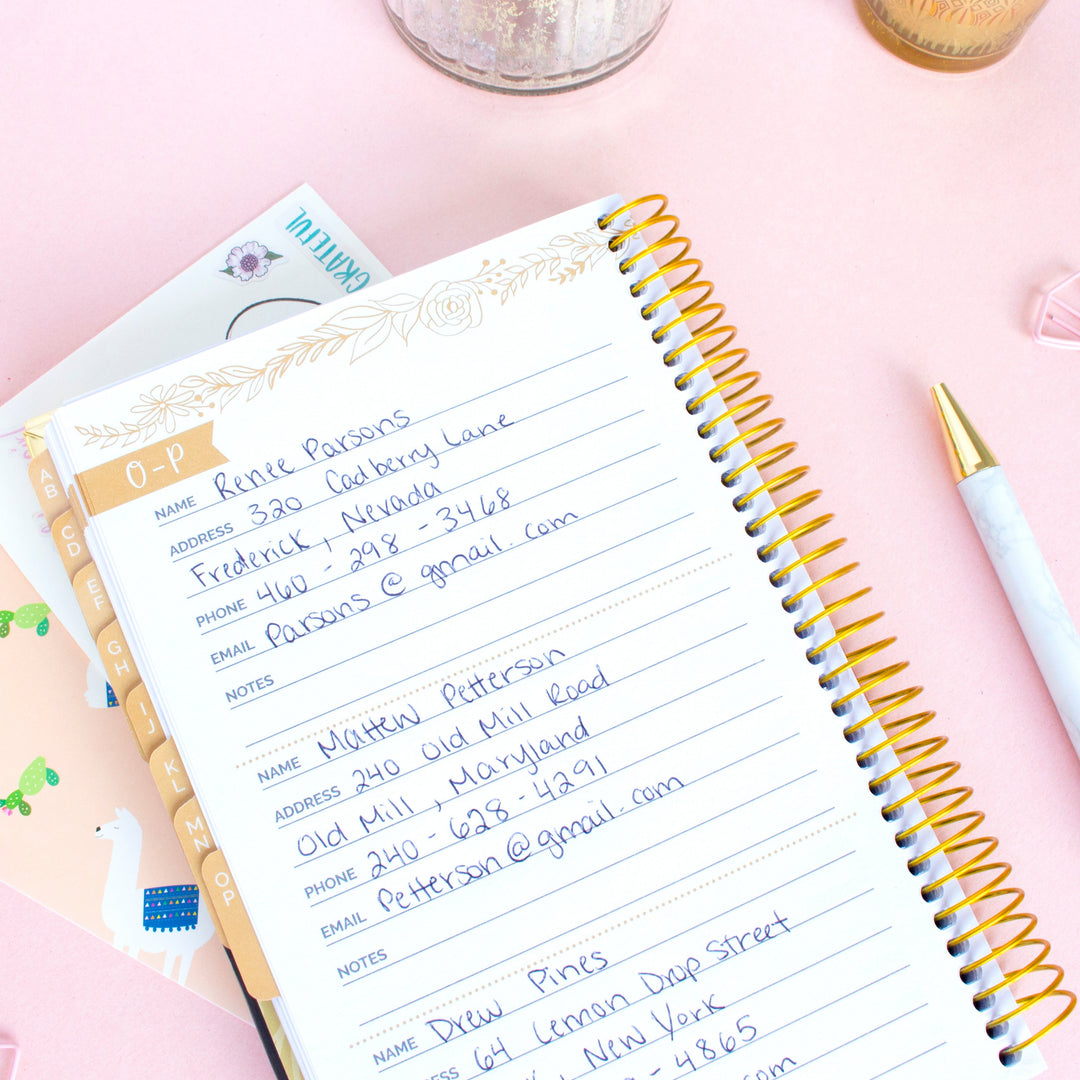 GRATEFUL
O-P
NAME Renee Parsons
ADDRESS 320 Cadberry Lane
Frederick, Nevada
PHONE 460-298-3468
EMAIL Parsons@gmail.com
NOTES
NAME Mattew Petterson
ADDRESS 240 Old Mill Road
Old Mill, Maryland
PHONE 240-628-4291
EMAIL Petterson@gmail.com
NOTES
NAME Drew Pines
64 Lemon Drop Street
New York
-4865
AB
CD
EF
GH
IJ
KL
MN
OP